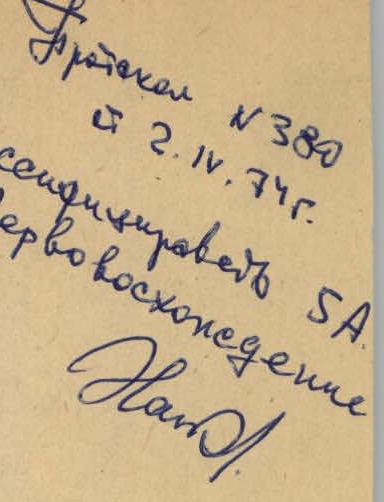 Протокол N 380
от 2.IV.74г.
ссифицировать 5А.
ервовосхождение